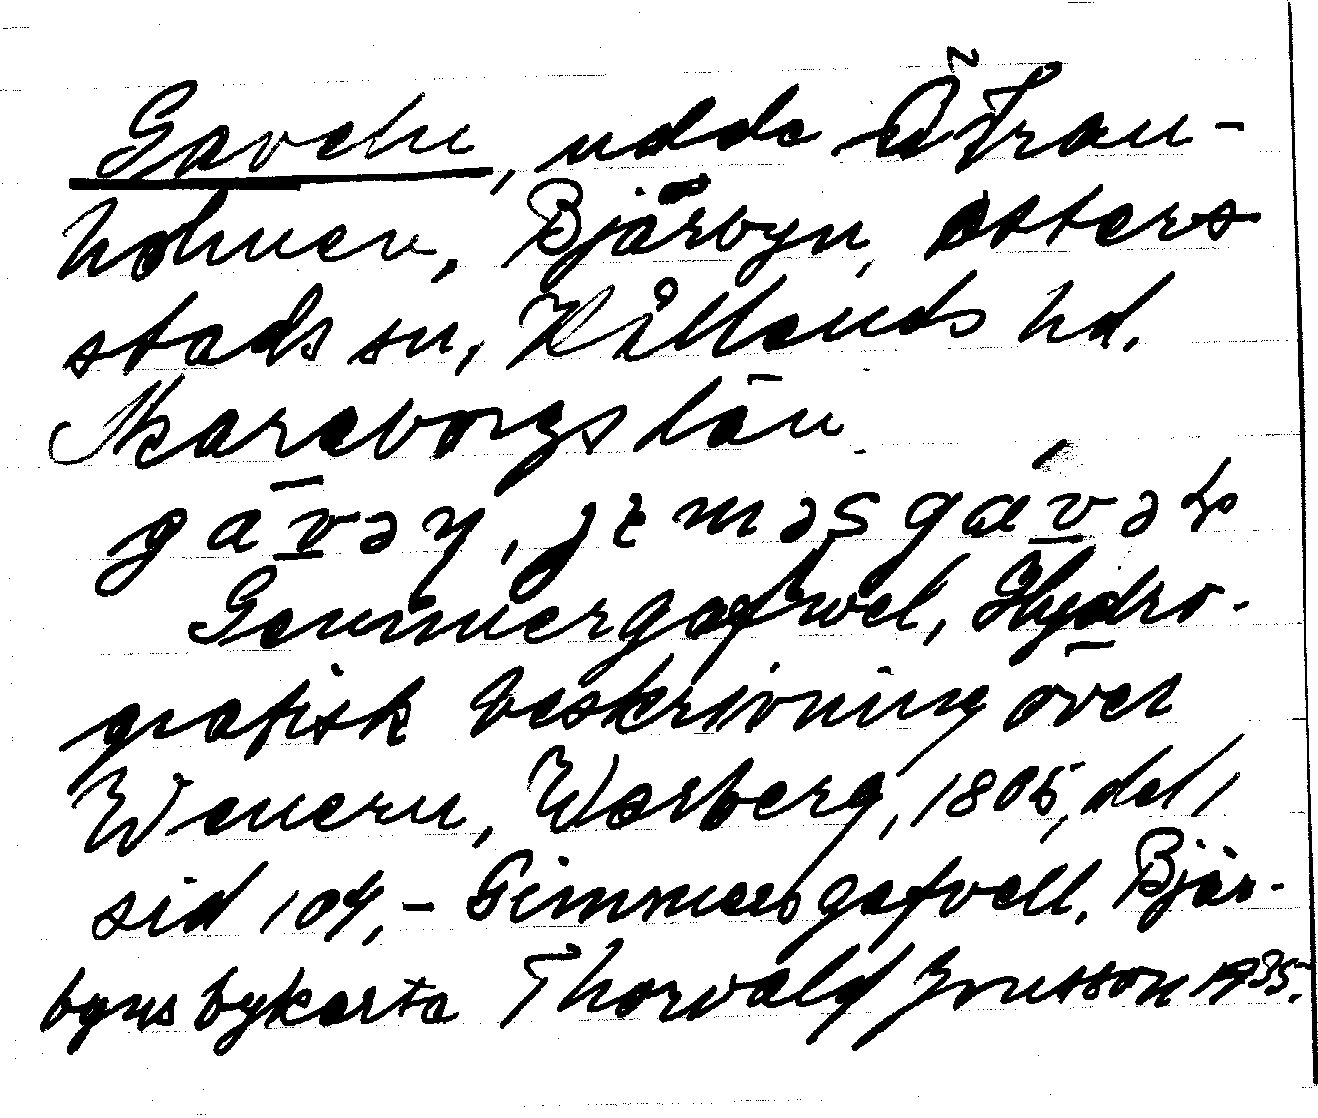 Gaveln, udde å Tran-
holmen, Bjärbyn, Otters
stads sn, Kållands hd.
Skaraborgs län
Gemmergafwel, Hydro-
grafisk beskrivning över
Wenern, Warberg, 1805, del 1
sid 104, - Gimmergafvell, Bjär-
byns bykarta Thorvald Jonsson 1935.